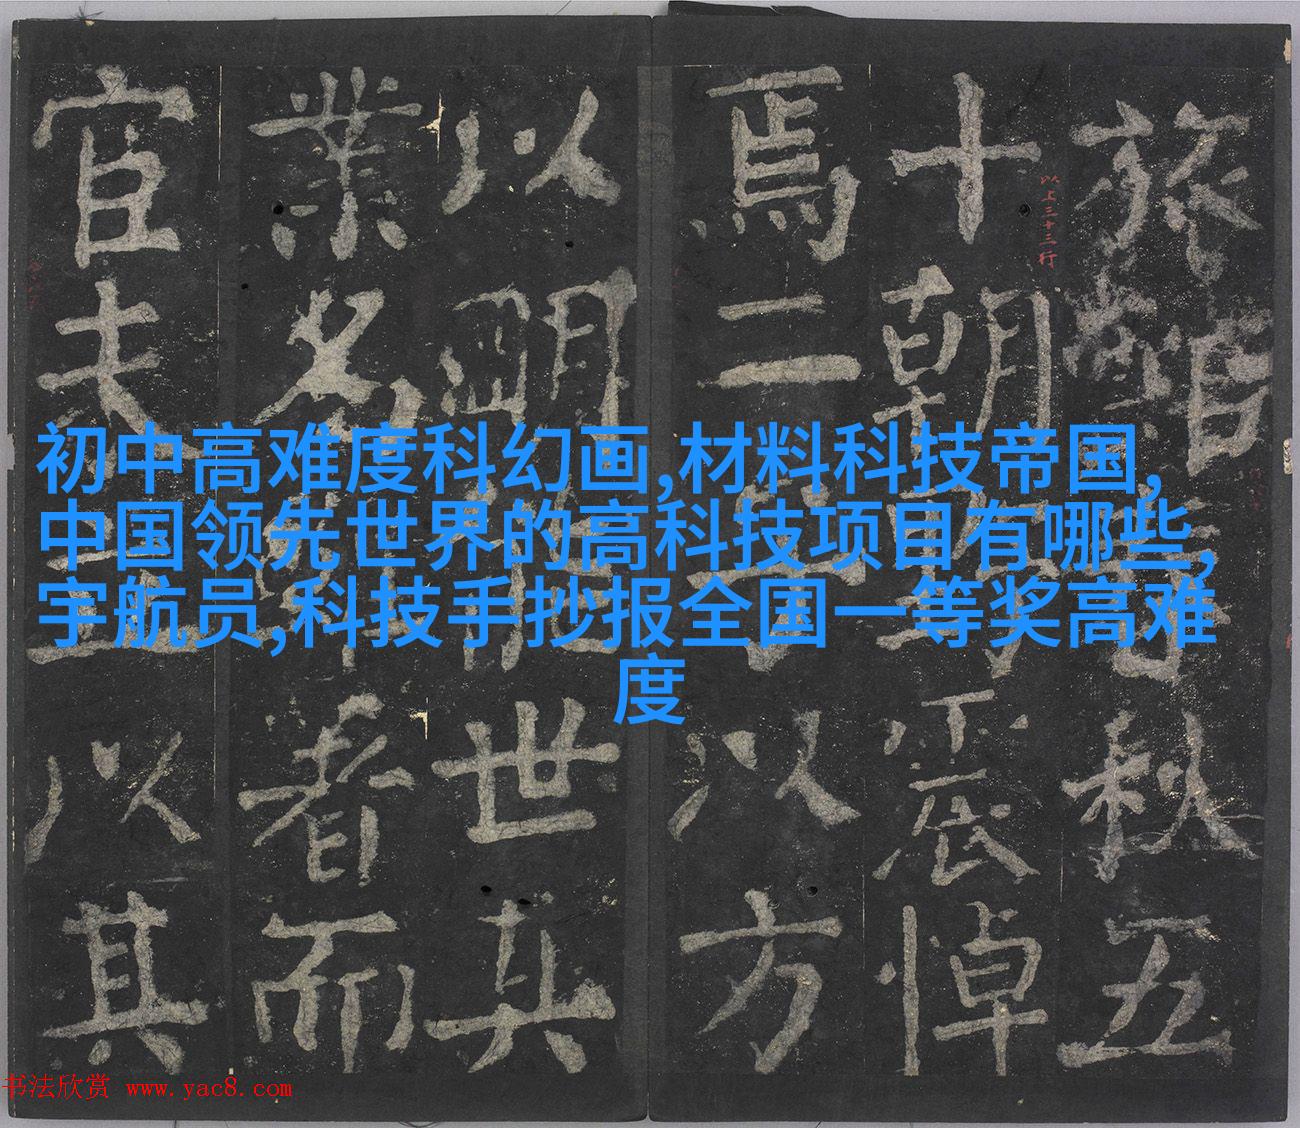 初中高难度科幻画,材料科技帝国,
中国领先世界的高科技项目有哪些,
宇航员,科技手抄报全国一等奖高难
度
旅館
秋五
十朝
震悼
以上三十三行
焉二
以方
以明
世其
業名
者而
官夫
以其
书法欣赏 www.yac8.com